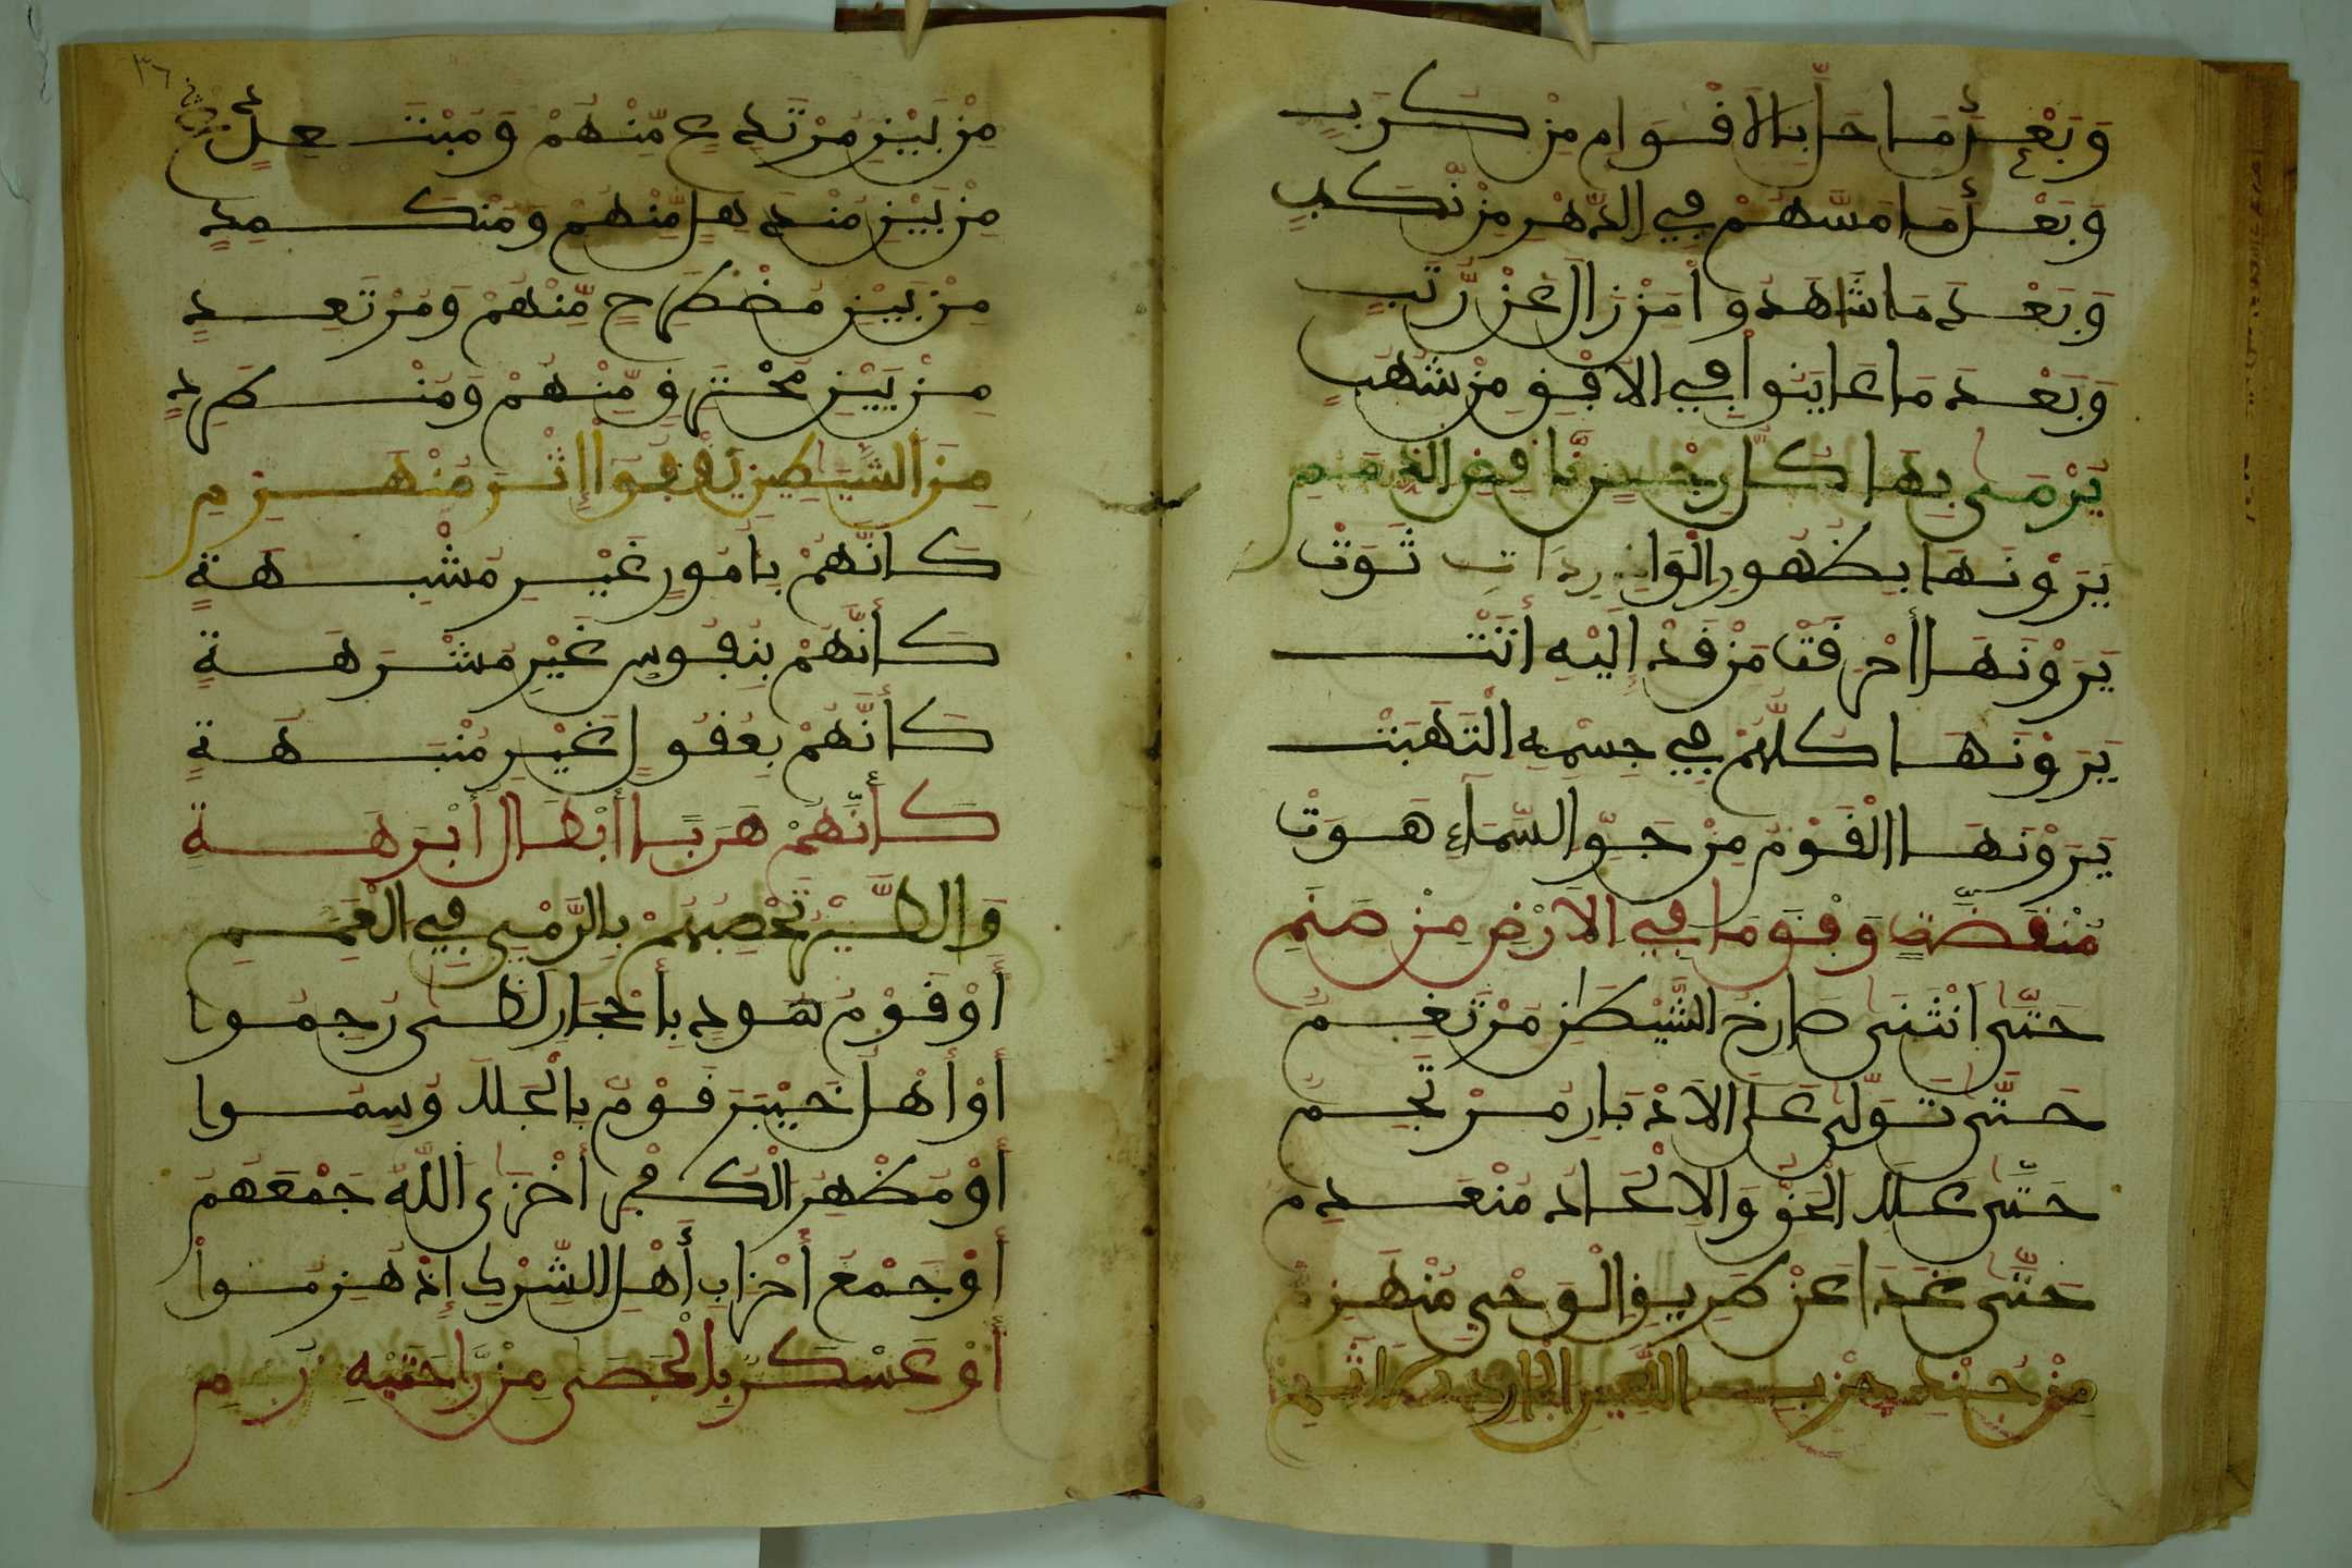 وَبَعْدَ مَا حَلَّ بِالاَقْوَامِ مِنْ كُرَبٍ
وَبَعْدَ مَا مَسَّهُمْ فِي الدَّهْرِ مِنْ نُّكَبٍ
وَبَعْدَ مَا شَاهَدُوا مَنْ زَالَ عَنْ رُّتَبٍ
وَبَعْدَ مَا عَايَنُوا فِي الاُفْقِ مِنْ شُهُبٍ
يُرْمَى بِهَا كُلُّ رِجْسٍ نَّاقِضِ الذِّمَمِ
يَرَوْنَهَا بِظُهُورِ الْوَارِدَاتِ ثَوَتْ
يَرَوْنَهَا أَحْرَقَتْ مَنْ قَدْ إِلَيْهِ أَتَتْ
يَرَوْنَهَا كُلُّهُمْ فِي جِسْمِهِ الْتَهَبَتْ
يَرَوْنَهَا الْقَوْمُ مِنْ جَوِّ السَّمَاءِ هَوَتْ
مُنْقَضَّةٍ وَفْقَ مَا فِي الاَرْضِ مِنْ صَنَمِ
حَتَّى انْثَنَى صَارِخُ الشَّيْطَنِ مُرْتَغِمُ
حَتَّى تَوَلَّى عَلَى الاَدْبَارِ مُرْتَجِمُ
حَتَّى عَلَا الْحَقُّ وَالاِلْحَادُ مُنْعَدِمُ
حَتَّى غَدَا عَنْ طَرِيقِ الْوَحْيِ مُنْهَزِمُ
مِنْ جُنْدِ حِزْبِ اللَّعِينِ
مِنْ بَيْنِ مُرْتَدِعٍ مِّنْهُمْ وَمُبْتَعِدٍ
مِنْ بَيْنِ مُنْدَهِلٍ مِّنْهُمْ وَمُنْكَمِدٍ
مِنْ بَيْنِ مُضْطَرِحٍ مِّنْهُمْ وَمُرْتَعِدٍ
مِنْ بَيْنِ مُحْتَرِقٍ مِّنْهُمْ وَمُنْطَرِدٍ
مِنَ الشَّيَاطِينِ يَقْفُوا إِثْرَ مُنْهَزِمِ
كَأَنَّهُمْ بِأُمُورٍ غَيْرِ مُشْبِهَةٍ
كَأَنَّهُمْ بِنُفُوسٍ غَيْرِ مُشْرَهَةٍ
كَأَنَّهُمْ بِعُقُولٍ غَيْرِ مُنْبَهَةٍ
كَأَنَّهُمْ هَرَبًا أَبْطَالُ أَبْرَهَةٍ
وَالطَّيْرُ تَحْصِبُهُمْ بِالرَّمْيِ فِي الْغُمَمِ
أَوْ قَوْمُ هُودٍ بِأَحْجَارِ لَظَى رُجِمُوا
أَوْ أَهْلُ خَيْبَرَ قَوْمٌ بِالْجَلَا وُسِمُوا
أَوْ مُظْهِرُ الْكُفْرِ أَخْزَى اللَّهُ جَمْعَهُمُ
أَوْ جَمْعُ أَحْزَابِ أَهْلِ الشِّرْكِ إِذْ هُزِمُوا
أَوْ عَسْكَرٌ بِالْحَصَى مِنْ رَّاحَتَيْهِ رُمِ